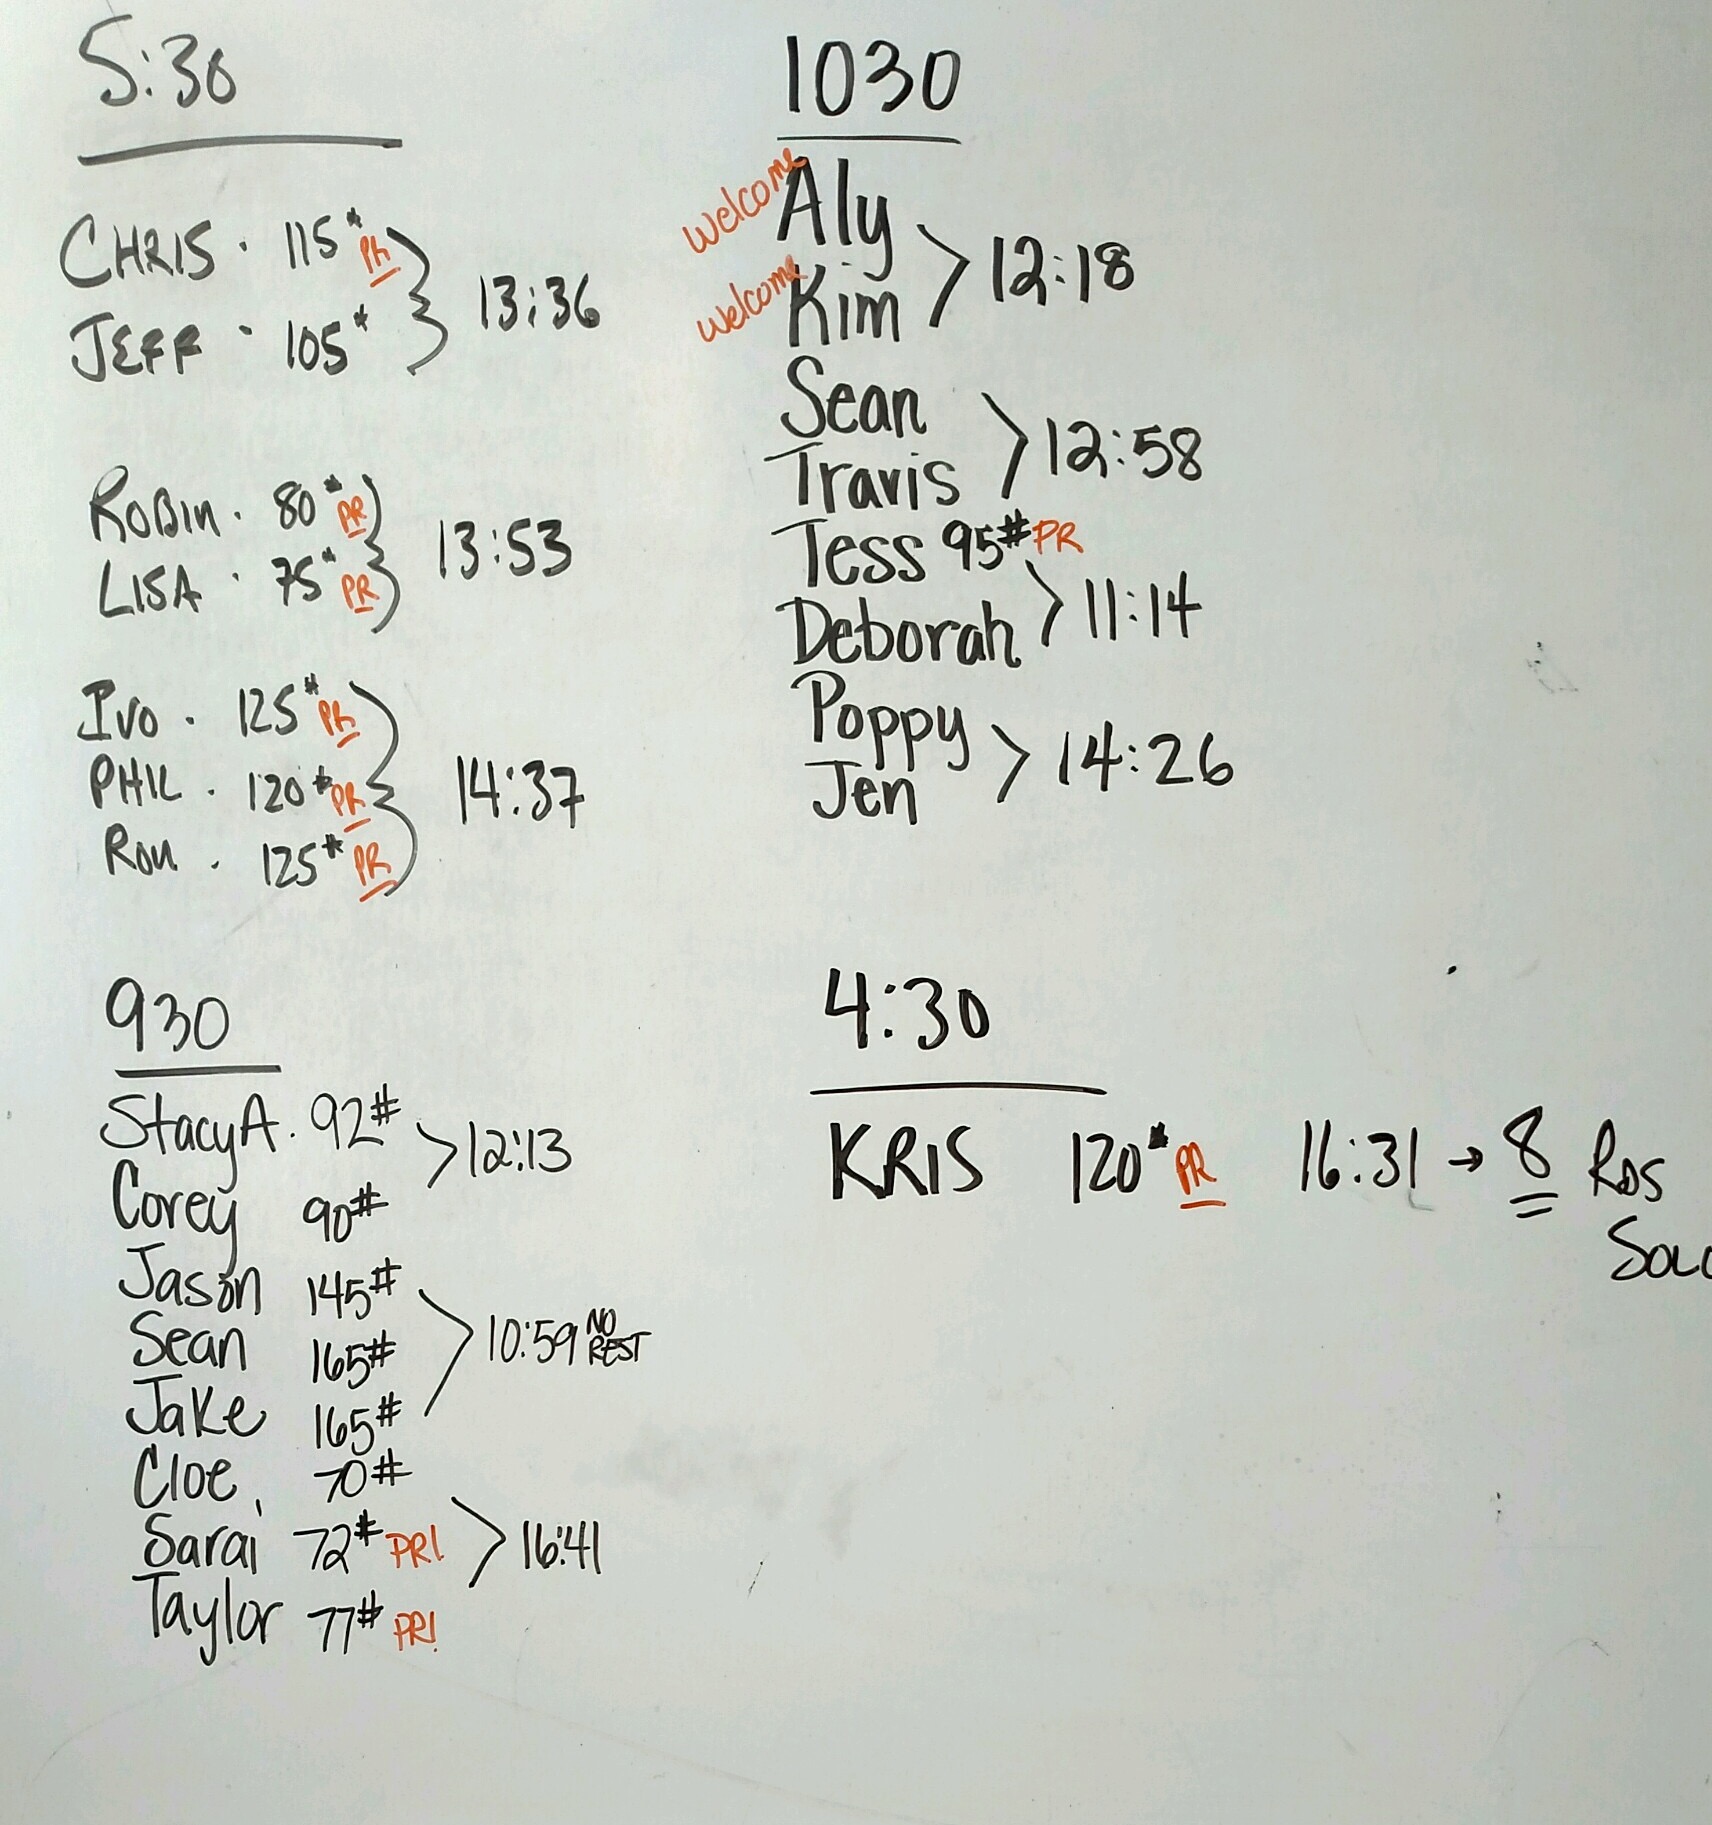 5:30
CHRIS . 115# PR
JEFF . 105#
13:36
ROBIN . 80# PR
LISA . 75# PR
13:53
IVO . 125# PR
PHIL . 120# PR
RON . 125# PR
14:37
930
StacyA. 92#
Corey 90#
12:13
Jason 145#
Sean 165#
Jake 165#
10:59 NO REST
Cloe 70#
Sarai 72# PR!
Taylor 77# PR!
16:41
1030
welcome Aly
welcome Kim
12:18
Sean
Travis
12:58
Tess 95# PR
Deborah
11:14
Poppy
Jen
14:26
4:30
KRIS 120# PR 16:31 → 8 RDS
SOLO